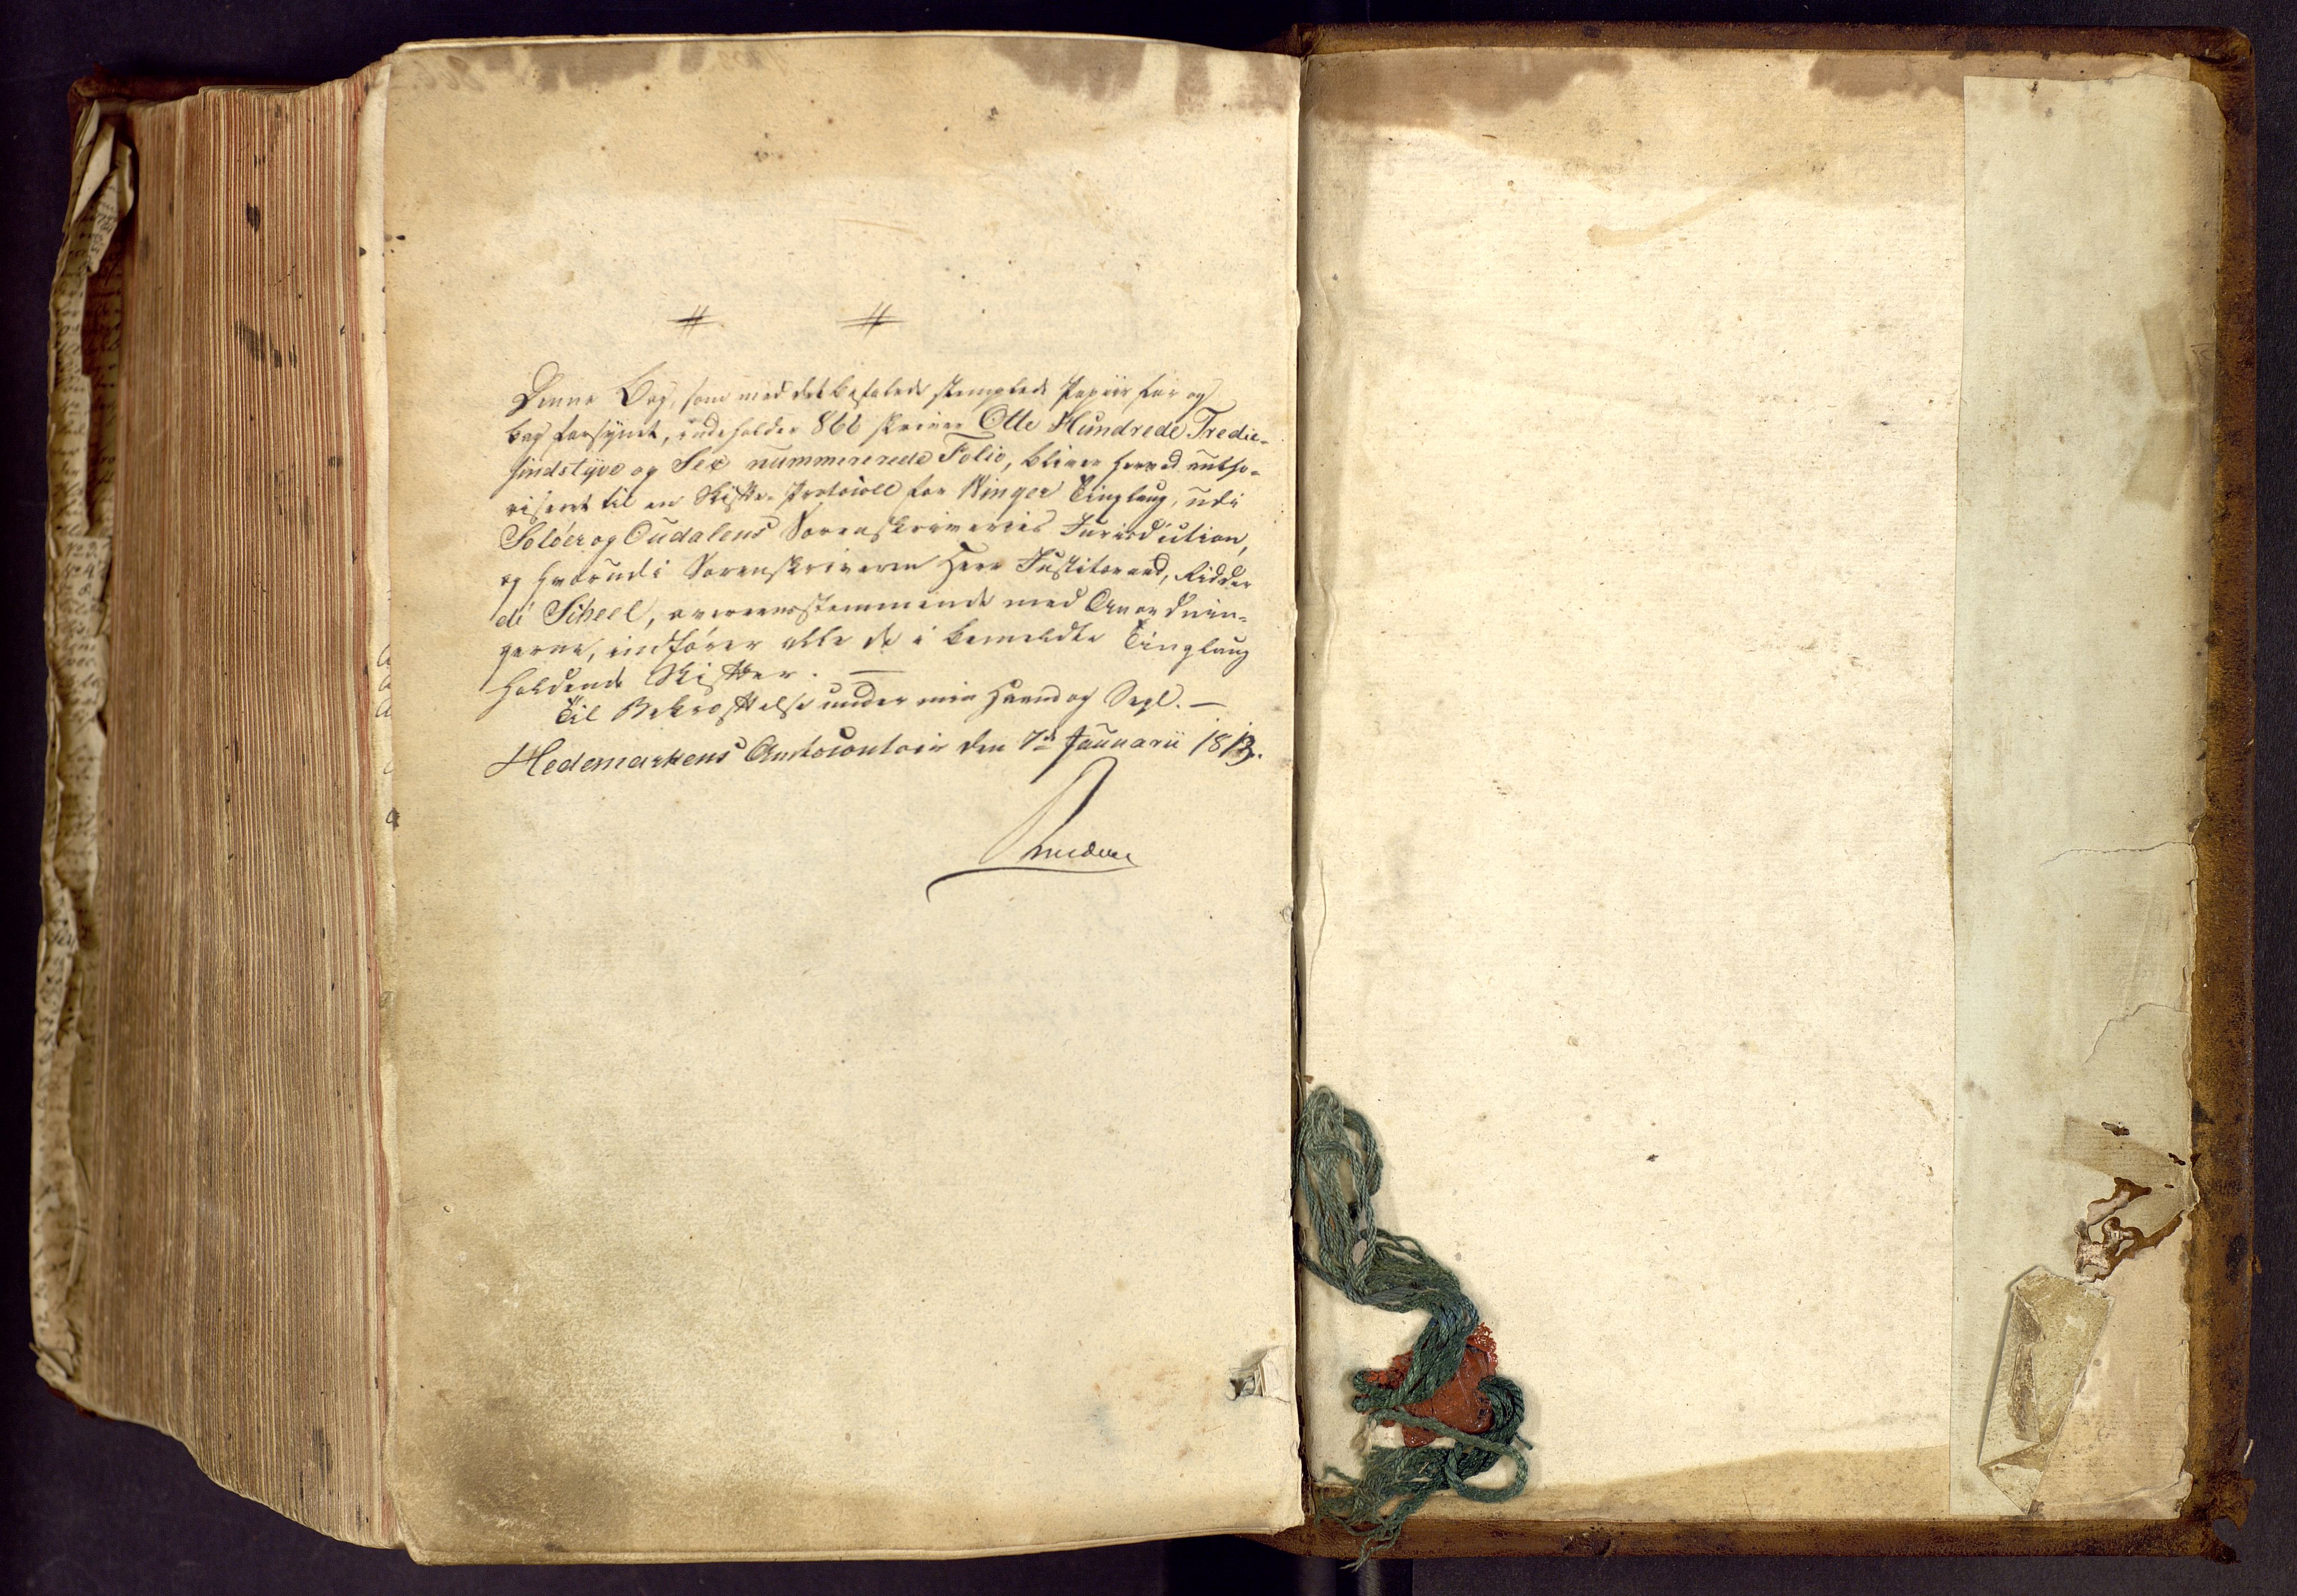 # #
Denne Bog, som med det befalede stemplede Papiir for og
bag forsynet, indeholder 866 skriver Otte Hundrede Tredie-
sindstyve og Sex nummererede Folio, bliver herved autho-
riseret til en Skifte-Protocoll for Winger Tinglaug, udi
Soløer og Oudalens Sorenskriveries Jurisdiction,
og hvorudi Sorenskriveren Herr Justitsraad, Ridder
de Scheel, overeensstemmende med Anordnin-
gerne, indfører alle de i bemeldte Tinglaug
holdende Skifter. —
Til Bekræftelse under min Haand og Segl. —
Hedemarkens Amtscontoir den 7de Januarii 1813.